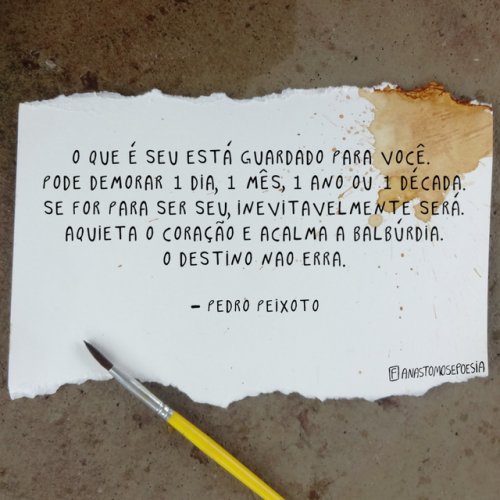 O QUE É SEU ESTÁ GUARDADO PARA VOCÊ.
PODE DEMORAR 1 DIA, 1 MÊS, 1 ANO OU 1 DÉCADA.
SE FOR PARA SER SEU, INEVITAVELMENTE SERÁ.
AQUIETA O CORAÇÃO E ACALMA A BALBÚRDIA.
O DESTINO NAO ERRA.
- PEDRO PEIXOTO
ANASTOMOSEPOESIA